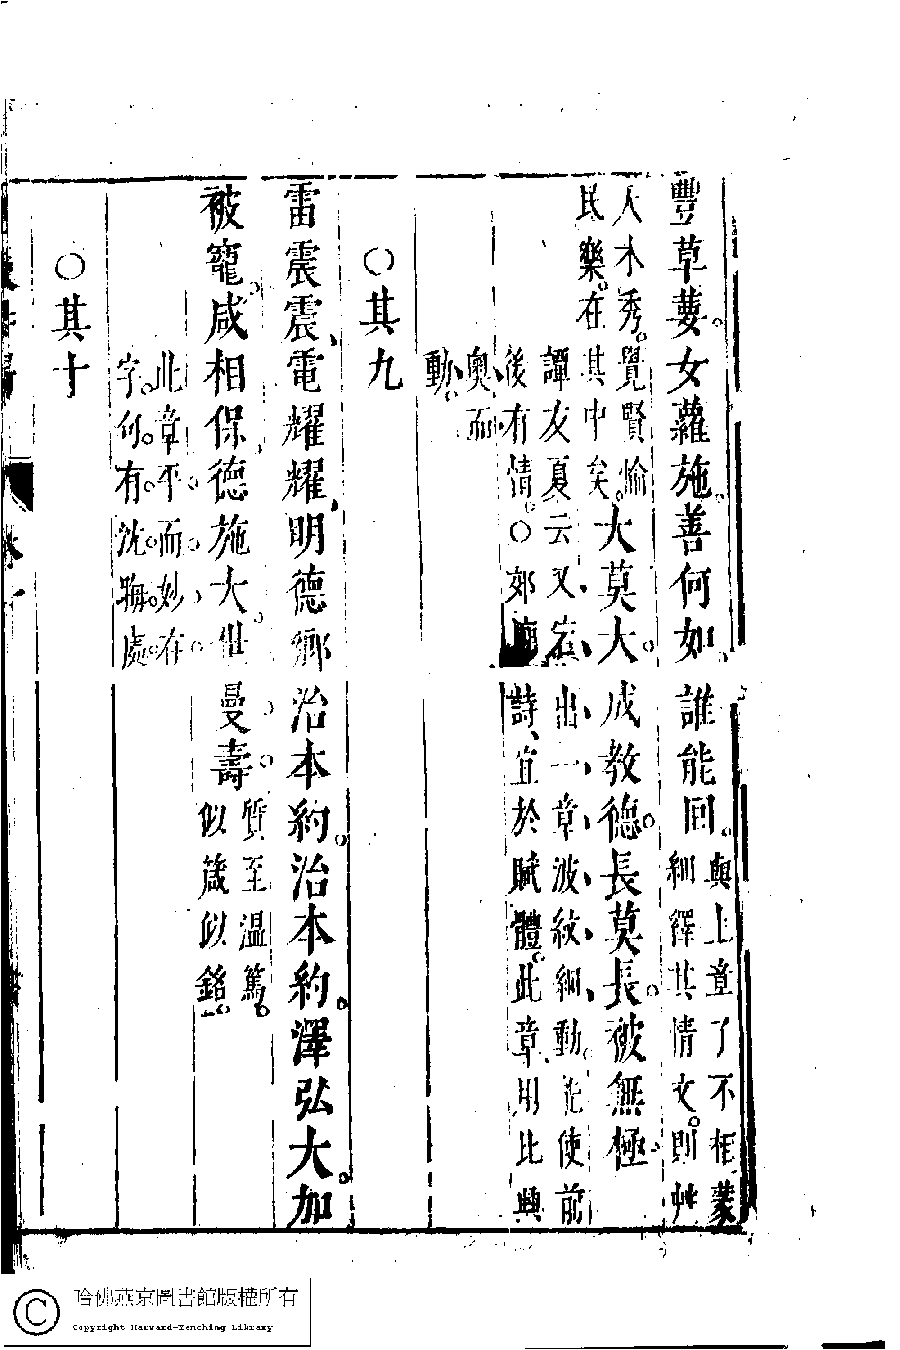 豐草葽。女蘿施。善何如、誰能回。
與上章了不相蒙
細繹其情文。則艸
木秀。覺賢愉
民樂。在其中矣。
大莫大。成教德。長莫長。被無極
譚友夏云又宕、出、一、章、波、紋、細、動。能使前
後有情。○郊廟詩、宜於賦體。此章用比興
奧、而
動、
○其九
雷震震、電耀耀、明德鄉治本約。治本約。澤弘大。加
被寵。咸相保、德施大。世曼壽。
質至溫篤。
似箴似銘。
此章平。而妙在
字。句。有。沈處
○其十
哈佛燕京圖書館版權所有
Copyright Harvard-Yenching Library